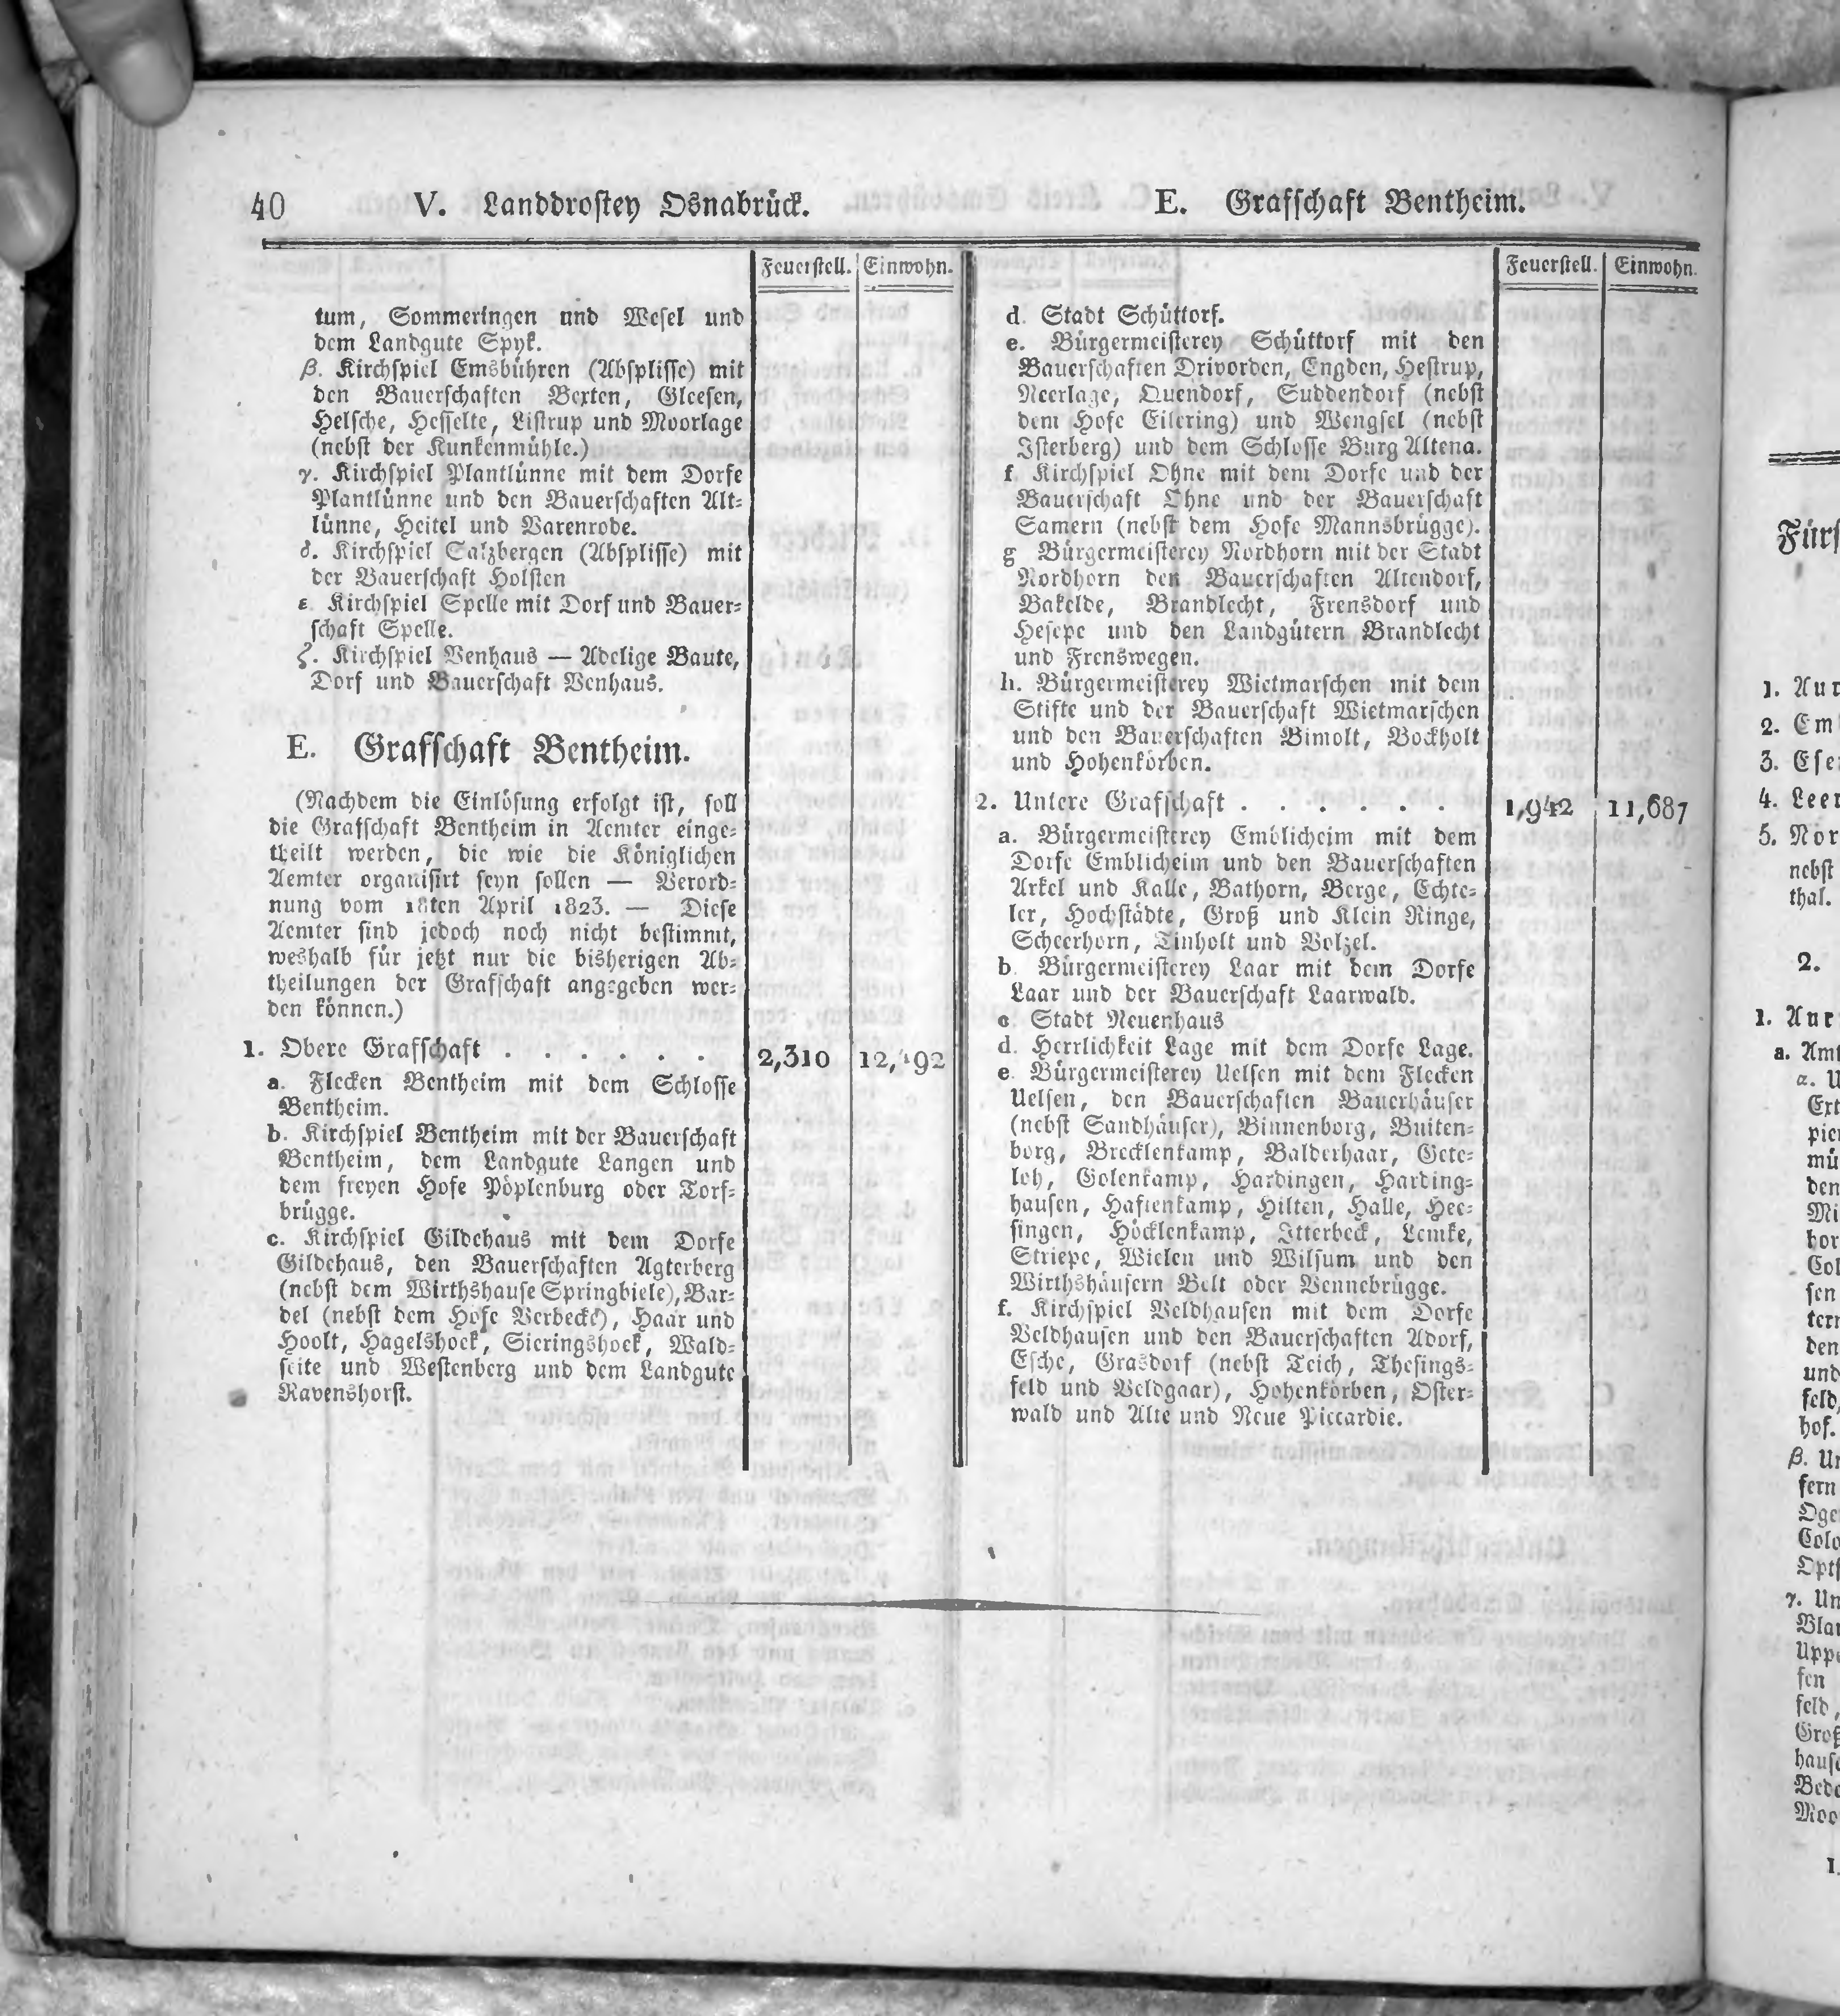 40 V. Landdrostey Osnabrück. E. Grafschaft Bentheim.
Feuerstell. Einwohn.
tum, Sommeringen und Wesel und
dem Landgute Spyk.
β. Kirchspiel Emsbühren (Absplisse) mit
den Bauerschaften Berten, Gleesen,
Helsche, Hesselte, Listrup und Moorlage
(nebst der Kunkenmühle.)
γ. Kirchspiel Plantlünne mit dem Dorfe
Plantlünne und den Bauerschaften Alt-
lünne, Heitel und Varenrode.
δ. Kirchspiel Salzbergen (Absplisse) mit
der Bauerschaft Holsten
ε Kirchspiel Spelle mit Dorf und Bauer-
schaft Spelle.
ζ. Kirchspiel Venhaus — Adelige Baute,
Dorf und Bauerschaft Venhaus.
E. Grafschaft Bentheim.
(Nachdem die Einlösung erfolgt ist, soll
die Grafschaft Bentheim in Aemter einge-
theilt werden, die wie die Königlichen
Aemter organisirt seyn sollen — Verord-
nung vom 18ten April 1823. — Diese
Aemter sind jedoch noch nicht bestimmt,
weshalb für jetzt nur die bisherigen Ab-
theilungen der Grafschaft angegeben wer-
den können.)
1. Obere Grafschaft . . . . . . 2,310
a. Flecken Bentheim mit dem Schlosse
Bentheim.
b. Kirchspiel Bentheim mit der Bauerschaft
Bentheim, dem Landgute Langen und
dem freyen Hofe Pöplenburg oder Torf-
brügge.
c. Kirchspiel Gildehaus mit dem Dorfe
Gildehaus, den Bauerschaften Agterberg
(nebst dem Wirthshause Springbiele), Bar-
del (nebst dem Hofe Verbecke), Haar und
Hoolt, Hagelshoek, Sieringshoek, Wald-
seite und Westenberg und dem Landgute
Ravenshorst.
Feuerstell. Einwohn.
d. Stadt Schüttorf.
e. Bürgermeisterey Schüttorf mit den
Bauerschaften Drivorden, Engden, Hestrup,
Neerlage, Quendorf, Suddendorf (nebst
dem Hofe Eilering) und Wengsel (nebst
Isterberg) und dem Schlosse Burg Altena.
f. Kirchspiel Ohne mit dem Dorfe und der
Bauerschaft Ohne und der Bauerschaft
Samern (nebst dem Hofe Mannsbrügge).
g Bürgermeisterey Nordhorn mit der Stadt
Nordhorn den Bauerschaften Altendorf,
Bakelde, Brandlecht, Frensdorf und
Hesepe und den Landgütern Brandlecht
und Frenswegen.
h. Bürgermeisterey Wietmarschen mit dem
Stifte und der Bauerschaft Wietmarschen
und den Bauerschaften Bimolt, Bockholt
und Hohenkörben.
2. Untere Grafschaft . . . . . . 1,942 11,687
a. Bürgermeisterey Emblicheim mit dem
Dorfe Emblicheim und den Bauerschaften
Arkel und Kalle, Bathorn, Berge, Echte-
ler, Hochstädte, Groß und Klein Ringe,
Scheerhorn, Tinholt und Volzel.
b. Bürgermeisterey Laar mit dem Dorfe
Laar und der Bauerschaft Laarwald.
c Stadt Neuenhaus
d. Herrlichkeit Lage mit dem Dorfe Lage.
e. Bürgermeisterey Uelsen mit dem Flecken
Uelsen, den Bauerschaften Bauerhäuser
(nebst Sandhäuser), Binnenborg, Buiten-
borg, Brecklenkamp, Balderhaar, Gete-
loh, Golenkamp, Hardingen, Harding-
hausen, Haftenkamp, Hilten, Halle, Hee-
singen, Höcklenkamp, Itterbeck, Lemke,
Striepe, Wielen und Wilsum und den
Wirthshäusern Belt oder Vennebrügge.
f. Kirchspiel Veldhausen mit dem Dorfe
Veldhausen und den Bauerschaften Adorf,
Esche, Grasdorf (nebst Teich, Thesings-
feld und Veldgaar), Hohenkörben, Oster-
wald und Alte und Neue Piccardie.
1.
2.
3.
4. Leer
5.
nebst
thal.
2.
1.
a.